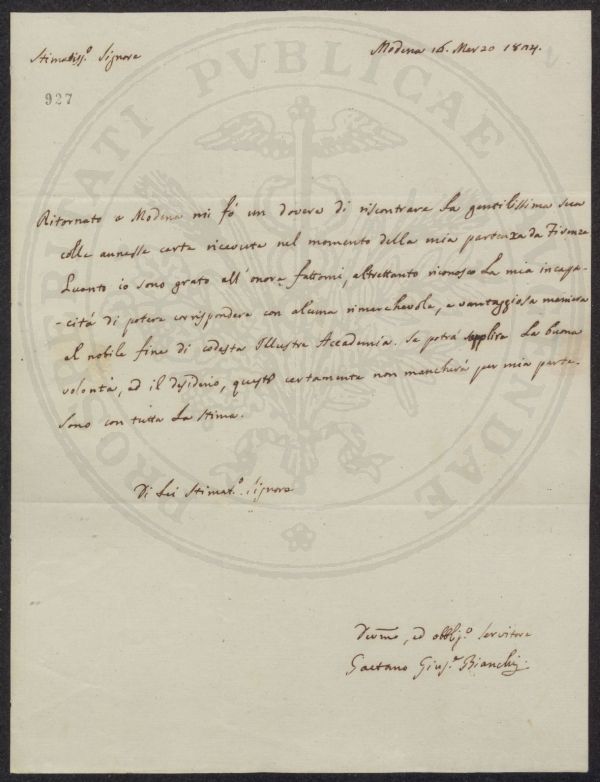 Stimatiss.º Signore
Modena 16. Marzo 1804.
927
Ritornato a Modena mi fò un dovere di riscontrare la gentilissima sua
colle annesse carte ricevute nel momento della mia partenza da Firenze
Quanto io sono grato all'onore fattomi, altrettanto riconosco la mia incapa-
-cità di potere corrispondere con alcuna rimarchevole, e vantaggiosa maniera
al nobile fine di codesta Illustre Accademia. Se potrà supplire la buona
volontà, ed il desiderio, questi certamente non mancherà per mia parte.
Sono con tutta la stima.
Di Lei Stimat.º Signore
Devmo, ed obblj.º servitore
Gaetano Gius.e Bianchi
PROSPERITATI PVBLICAE AVGENDAE